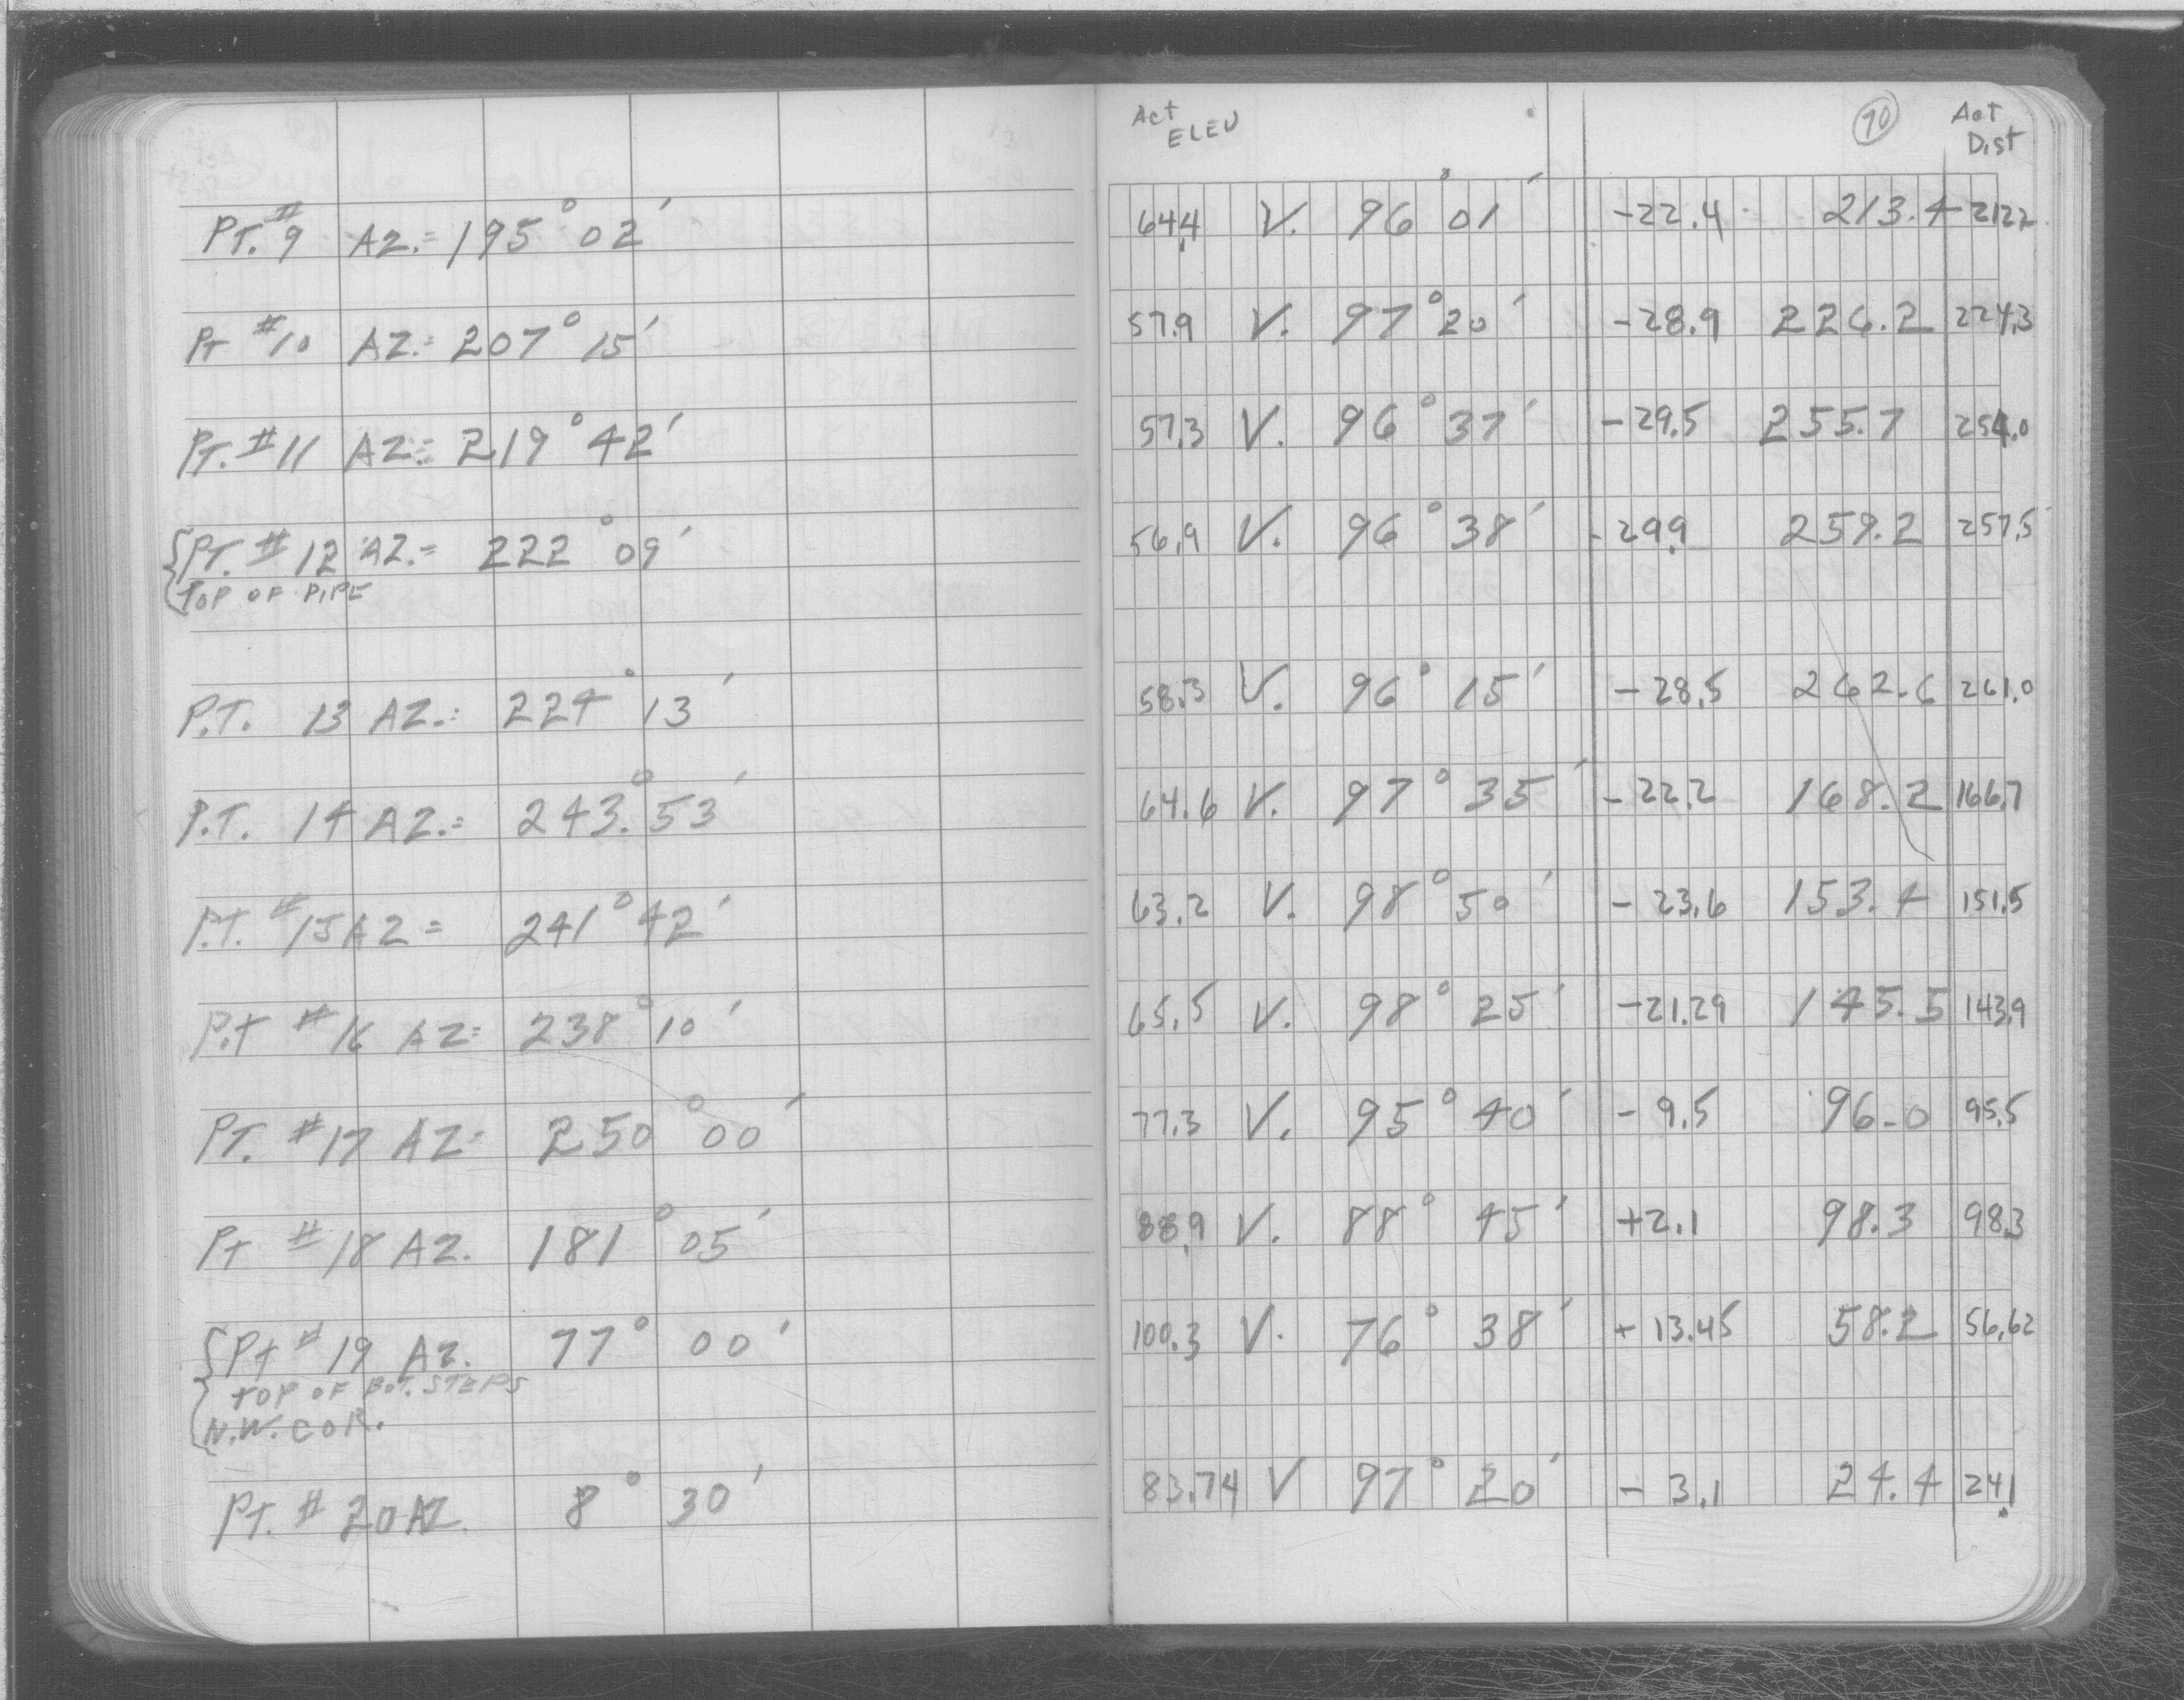 Act ELEV
70
Act Dist
PT. #9 AZ.= 195° 02' 64.4 V. 96° 01' -22.4 213.4 212.2
Pt #10 AZ.= 207° 15' 57.9 V. 97° 20' -28.9 226.2 224.3
PT. #11 AZ.= 219° 42' 57.3 V. 96° 37' -29.5 255.7 254.0
PT. #12 AZ.= 222° 09' 56.9 V. 96° 38' -29.9 259.2 257.5
TOP OF PIPE
P.T. 13 AZ.= 224° 13' 58.3 V. 96° 15' -28.5 262.6 261.0
P.T. 14 AZ.= 243.° 53' 64.6 V. 97° 35' -22.2 168.2 166.7
P.T. #15 AZ = 241° 42' 63.2 V. 98° 50' -23.6 153.4 151.5
P.t #16 AZ= 238° 10' 65.5 V. 98° 25' -21.29 145.5 143.9
PT. #17 AZ= 250° 00' 77.3 V. 95° 40' -9.5 96.0 95.5
Pt #18 AZ. 181° 05' 88.9 V. 88° 45' +2.1 98.3 98.3
Pt #19 AZ. 77° 00' 100.3 V. 76° 38' +13.45 58.2 56.62
TOP OF BOT. STEPS
N.W. COR.
PT. #20 AZ. 8° 30' 83.74 V 97° 20' -3.1 24.4 24.1